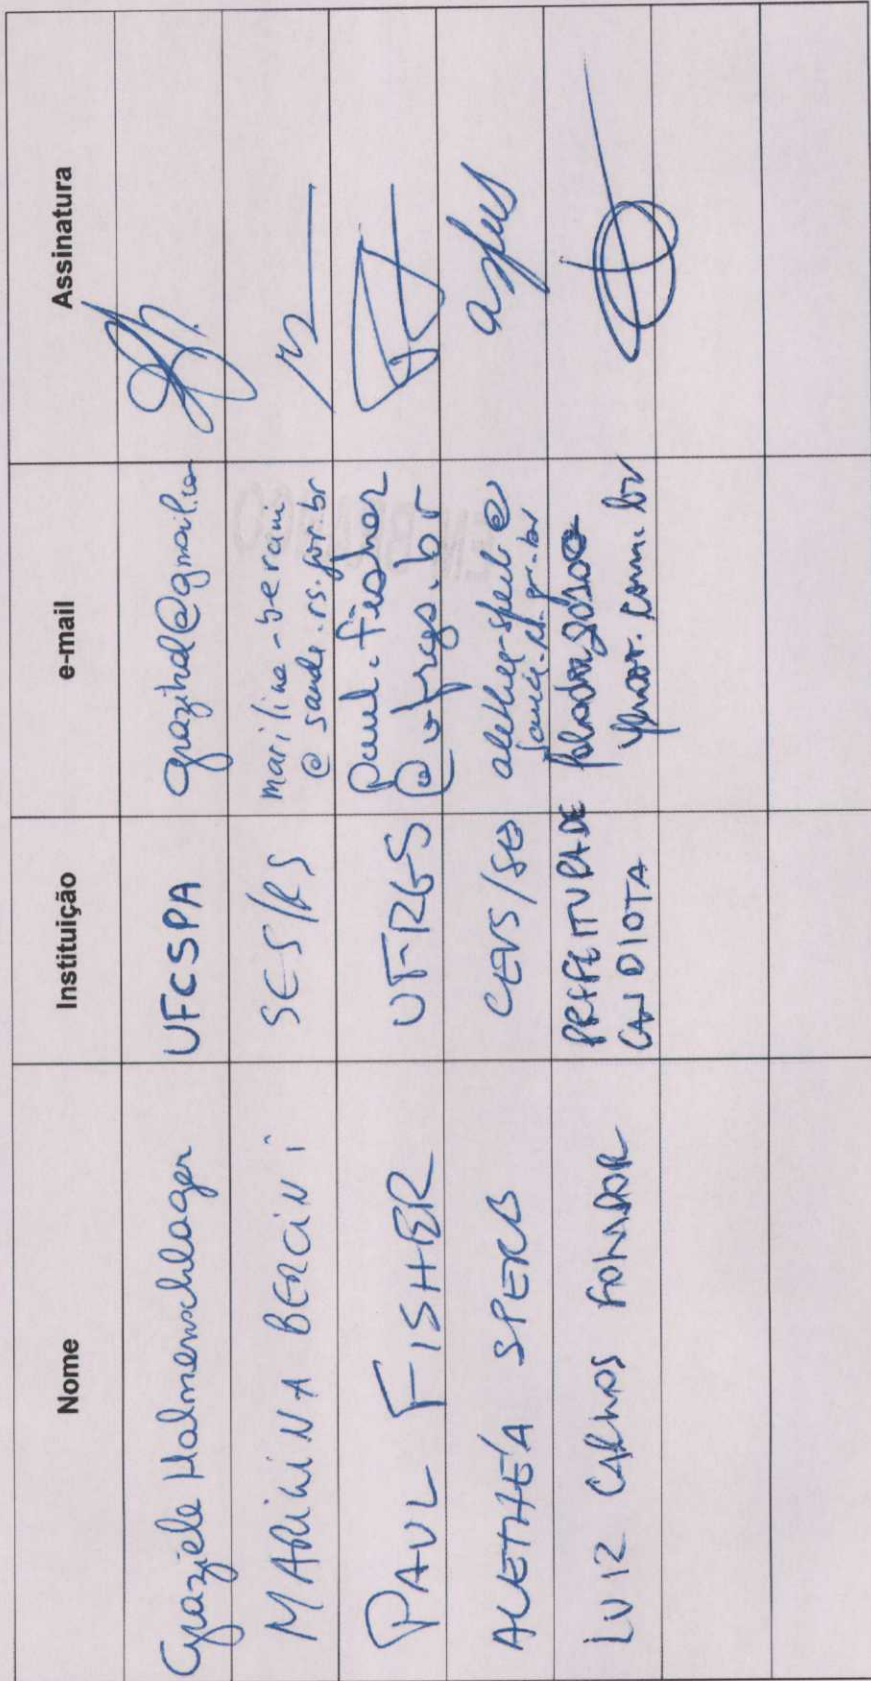 Nome Instituição e-mail Assinatura
Graziele Halmenschlager UFCSPA grazihal@gmail.com
MARILINA BERCINI SES/RS marilina-bercini
@saude.rs.gov.br
PAUL FISHER UFRGS paul.fisher
@ufrgs.br
ALETHÉA SPERB CEVS/SES alethea-sperb@
saude.rs.gov.br
LUIZ CARLOS PREFEITURA DE
CANDIOTA
EM BRANCO